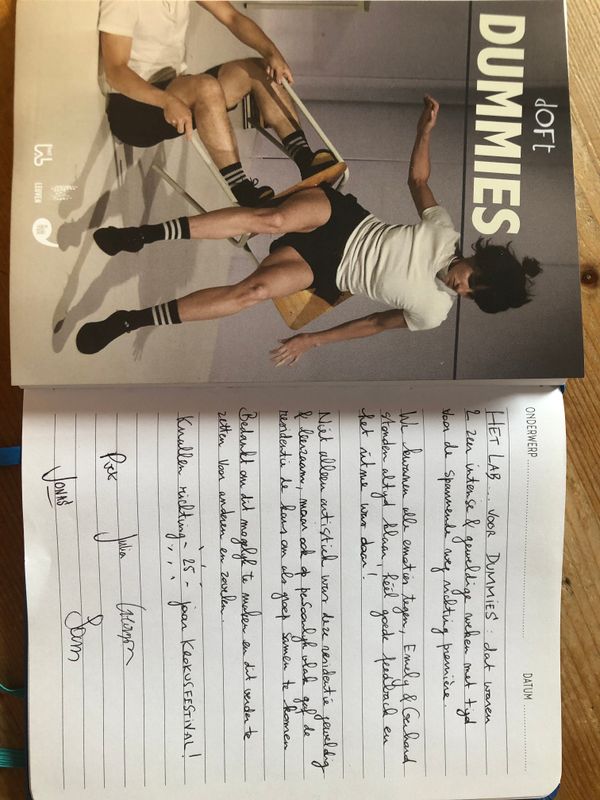 dOFt
DUMMIES
LEUVEN
ONDERWERP
DATUM
HET LAB... VOOR DUMMIES: dat waren
2 zeer intense & geweldige weken met tijd
voor de spannende weg richting première.
We kwamen alle emoties tegen, Emely & Gerhard
stonden altijd klaar, héél goede feedback en
het ritme was daar!
Niet alleen artistiek was deze residentie geweldig
& leerzaam, maar ook op persoonlijk vlak gaf de
residentie de kans om als groep samen te komen
Bedankt om dit mogelijk te maken en dit verder te
zetten voor anderen en zovelen.
Knallen richting - 25 - jaar KROKUSFESTIVAL!
Julia
JONAS
Sam